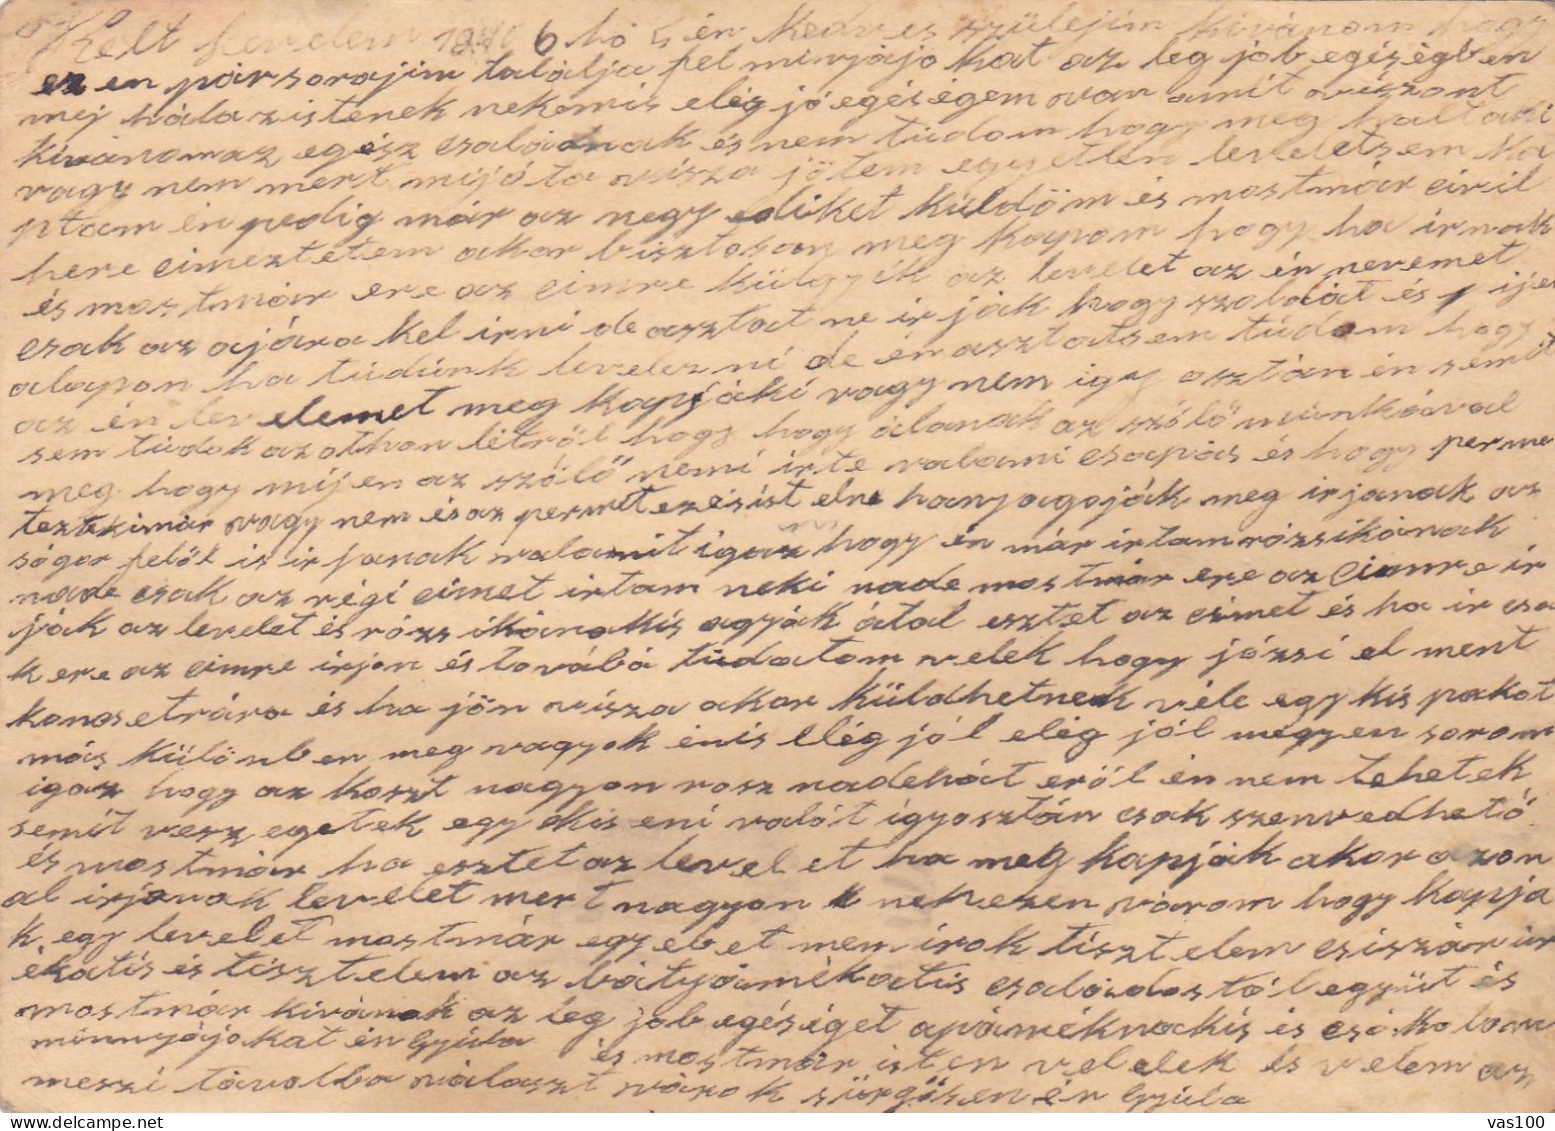 Kelt levelem 194 6 hó 5 én Kedves szülejim kivánom hogy
ez en pár sorajim találja fel minyájokat az leg job egéségben
mej hála zistenek nekemis elég jó egéségem van amit viszont
kivánom az egész családnak és nem tudom hogy meg haltadi
vagy nem mert mijóta visza jötem egyetlen leveletsem ka
ptam én pedig már az negyediket küldöm és mostmár civil
here cimeztetem akor bisztosan meg kapom hogy ha irnak
és mostmár ere az cimre külgyék az levelet az én nevemet
csak az ajára kel irni de asztat ne irják hogy szoldát és ije
alapon ha tudunk levelezni de én asztatsem tudom hogy
az én levelemet meg kapjáki vagy nem igy osztán én semit
sem tudok az othon létről hogy hogy álanak az szőlő munkával
meg hogy mijen az szőlő nemi érte valami csapás és hogy perme
teztekimár vagy nem és az permetezésist elne hanyagoják meg irjanak az
sógor felől is irjanak valamit igaz hogy én már irtam rózsikának
nade csak az régi cimet irtam neki nade mostmár ere az cimre ir
ják az levelet és rózsikánakis agyák átal esztet az cimet és ha ir csa
k ere az cimre irjon és továbá tudatom velek hogy józsi el ment
konosetrára és ha jön visza akor küldhetnek véle egy kis pakot
más különben meg vagyok énis elég jól elég jól megyen sorom
igaz hogy az koszt nagyon rosz nadehát eről én nem tehetek
semit veszegetek egy kis eni valót igyosztán csak szenvedhető
és mostmár ha esztet az levelet ha meg kapják akor azon
al irjanak levelet mert nagyon nehezen várom hogy kapja
k egy levelet mostmár egyebet nem irok tisztelem csiszár ur
ékatis és tisztelem az bátyámékatis családostól együt és
mostmár kivánok az leg job egéséget apáméknakis és csókolom
minnyájokat én Gyula és mostmár isten velelek és velem az
meszi távolba választ várok sürgősen én Gyula
vas100